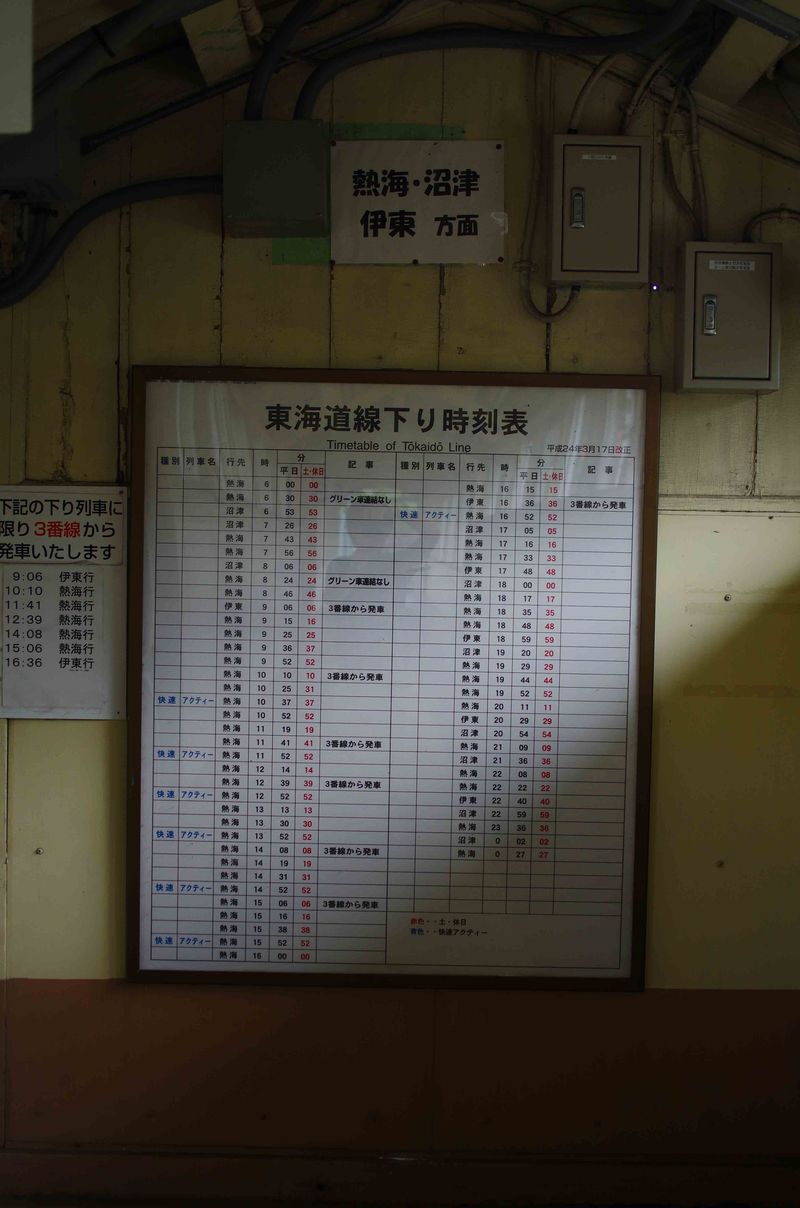 熱海・沼津
伊東 方面
東海道線下り時刻表
Timetable of Tōkaidō Line
平成24年3月17日改正
種別 列車名 行先 時 分 平日 土・休日 記事
熱海 6 00 00
熱海 6 30 30 グリーン車連結なし
沼津 6 53 53
沼津 7 26 26
熱海 7 43 43
熱海 7 56 56
沼津 8 06 06
熱海 8 24 24 グリーン車連結なし
熱海 8 46 46
伊東 9 06 06 3番線から発車
熱海 9 15 16
熱海 9 25 25
熱海 9 36 37
熱海 9 52 52
熱海 10 10 10 3番線から発車
熱海 10 25 31
快速 アクティー 熱海 10 37 37
熱海 10 52 52
熱海 11 19 19
熱海 11 41 41 3番線から発車
快速 アクティー 熱海 11 52 52
熱海 12 14 14
熱海 12 39 39 3番線から発車
快速 アクティー 熱海 12 52 52
熱海 13 13 13
熱海 13 30 30
快速 アクティー 熱海 13 52 52
熱海 14 08 08 3番線から発車
熱海 14 19 19
熱海 14 31 31
快速 アクティー 熱海 14 52 52
熱海 15 06 06 3番線から発車
熱海 15 16 16
熱海 15 38 38
快速 アクティー 熱海 15 52 52
熱海 16 00 00
種別 列車名 行先 時 分 平日 土・休日 記事
熱海 16 15 15
伊東 16 36 36 3番線から発車
快速 アクティー 熱海 16 52 52
沼津 17 05 05
熱海 17 16 16
熱海 17 33 33
伊東 17 48 48
沼津 18 00 00
熱海 18 17 17
熱海 18 35 35
熱海 18 48 48
伊東 18 59 59
沼津 19 20 20
熱海 19 29 29
熱海 19 44 44
熱海 19 52 52
熱海 20 11 11
伊東 20 29 29
沼津 20 54 54
熱海 21 09 09
沼津 21 36 36
熱海 22 08 08
熱海 22 22 22
伊東 22 40 40
沼津 22 59 59
熱海 23 36 36
沼津 0 02 02
熱海 0 27 27
赤色・・土・休日
青色・・快速アクティー
下記の下り列車に
限り3番線から
発車いたします
9:06 伊東行
10:10 熱海行
11:41 熱海行
12:39 熱海行
14:08 熱海行
15:06 熱海行
16:36 伊東行